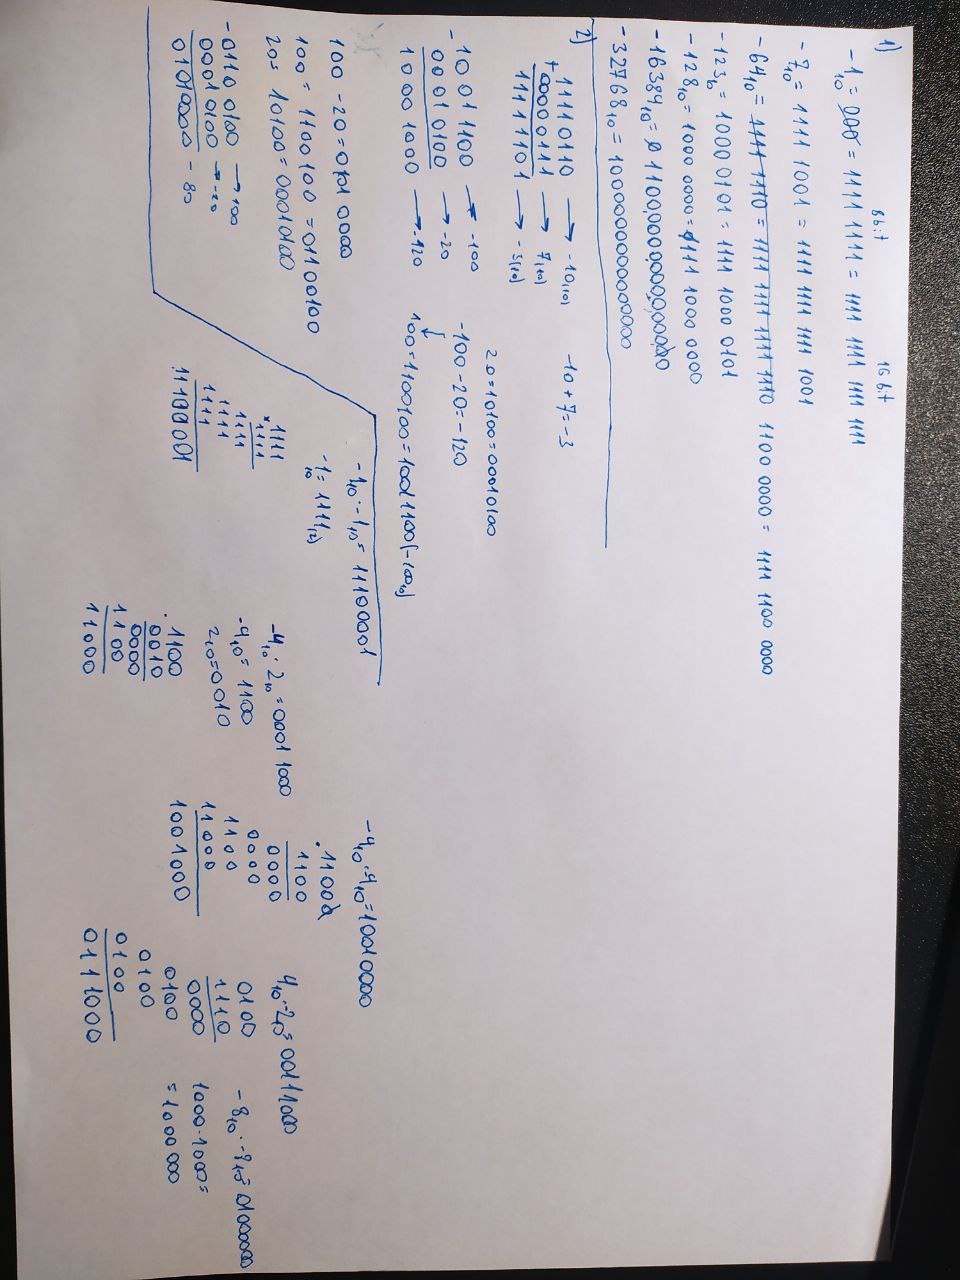 1) 8bit 16 bit
-1₁₀ = 1111 1111 = 1111 1111 1111 1111
-7₁₀ = 1111 1001 = 1111 1111 1111 1001
-64₁₀ = 1111 1110 = 1111 1111 1111 1110 1100 0000 = 1111 1100 0000
-123₁₀ = 1000 0101 = 1111 1000 0101
-128₁₀ = 1000 0000 = 1111 1000 0000
-16384₁₀ = 1100,0000,0000,0000
-32768₁₀ = 1000000000000000
2) 11110110 → -10₍₁₀₎ -10+7=-3
+00000111 → 7₍₁₀₎
11111101 → -3₍₁₀₎
20=10100=00010100
-10011100 → -100 -100-20=-120
00010100 → -20
10001000 → -120 100=1100100=10011100(-100₁₀)
100-20=01010000
100=1100100=01100100
20=10100=00010100
-01100100 → 100
00010100 → -20
01010000 - 80
-1₁₀·-1₁₀=11100001
-1₁₀=1111₍₂₎
1111
×1111
1111
1111
1111
1111
11100001
-4₁₀·2₁₀=00011000
-4₁₀=1100
2₁₀=0010
1100
·0010
0000
1100
11000
-4₁₀·4₁₀=10010000
·1100
1100
0000
0000
1100
11000
1001000
4₁₀·-2₁₀=00111000
0100
1110
0000
0100
0100
0100
0111000
-8₁₀·-8₁₀=01000000
1000·1000=
=1000000